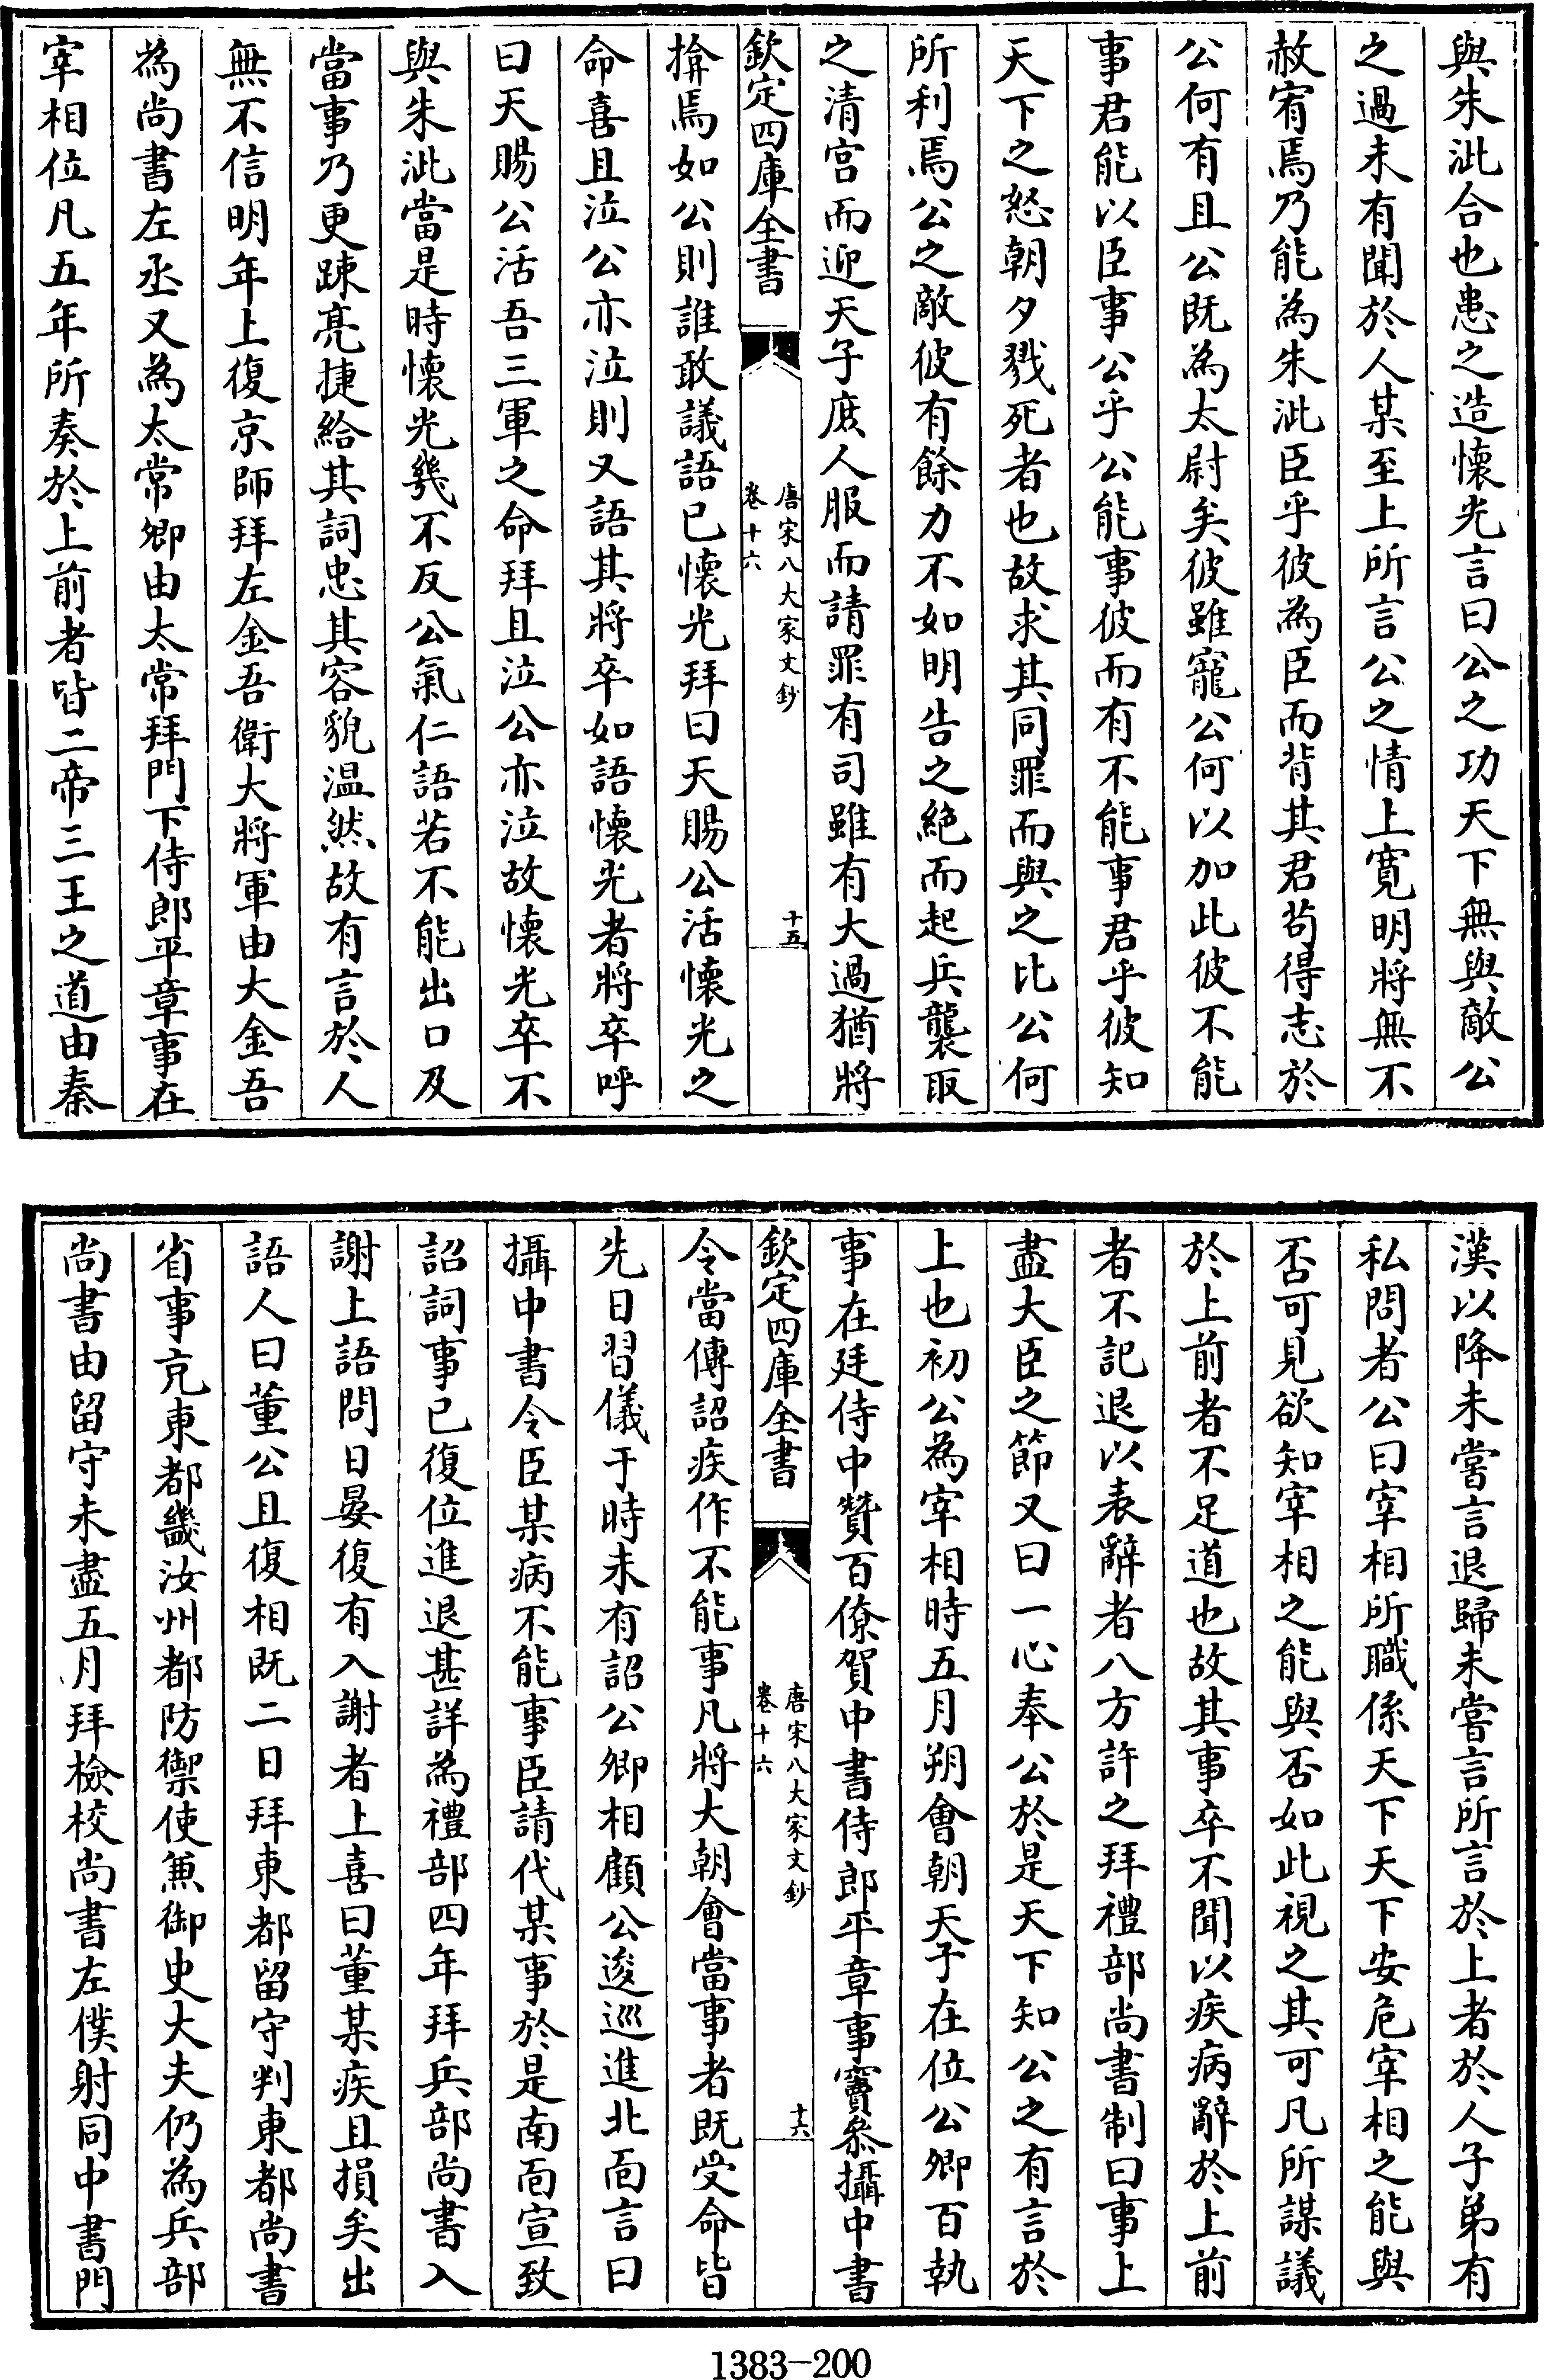 與朱泚合也患之造懷光言曰公之功天下無與敵公
之過未有聞於人某至上所言公之情上寛明將無不
赦宥焉乃能為朱泚臣乎彼為臣而背其君茍得志於
公何有且公既為太尉矣彼雖寵公何以加此彼不能
事君能以臣事公乎公能事彼而有不能事君乎彼知
天下之怒朝夕戮死者也故求其同罪而與之比公何
所利焉公之敵彼有餘力不如明告之絶而起兵襲取
之清宫而迎天子庶人服而請罪有司雖有大過猶將
欽定四庫全書
唐宋八大家文鈔
卷十六
十五
揜焉如公則誰敢議語已懷光拜曰天賜公活懷光之
命喜且泣公亦泣則又語其將卒如語懷光者將卒呼
曰天賜公活吾三軍之命拜且泣公亦泣故懷光卒不
與朱泚當是時懷光㡬不反公氣仁語若不能出口及
當事乃更踈亮捷給其詞忠其容貌温然故有言於人
無不信明年上復京師拜左金吾衛大將軍由大金吾
為尚書左丞又為太常卿由太常拜門下侍郎平章事在
宰相位凡五年所奏於上前者皆二帝三王之道由秦
漢以降未嘗言退歸未嘗言所言於上者於人子弟有
私問者公曰宰相所職係天下天下安危宰相之能與
否可見欲知宰相之能與否如此視之其可凡所謀議
於上前者不足道也故其事卒不聞以疾病辭於上前
者不記退以表辭者八方許之拜禮部尚書制曰事上
盡大臣之節又曰一心奉公於是天下知公之有言於
上也初公為宰相時五月朔會朝天子在位公卿百執
事在廷侍中贊百僚賀中書侍郎平章事竇叅攝中書
欽定四庫全書
唐宋八大家文鈔
卷十六
十六
令當傳詔疾作不能事凡將大朝會當事者既受命皆
先日習儀于時未有詔公卿相顧公逡巡進北面言曰
攝中書令臣某病不能事臣請代某事於是南面宣致
詔詞事已復位進退甚詳為禮部四年拜兵部尚書入
謝上語問日晏復有入謝者上喜曰董某疾且損矣出
語人曰董公且復相既二日拜東都留守判東都尚書
省事充東都畿汝州都防禦使兼御史大夫仍為兵部
尚書由留守未盡五月拜檢校尚書左僕射同中書門
1383-200